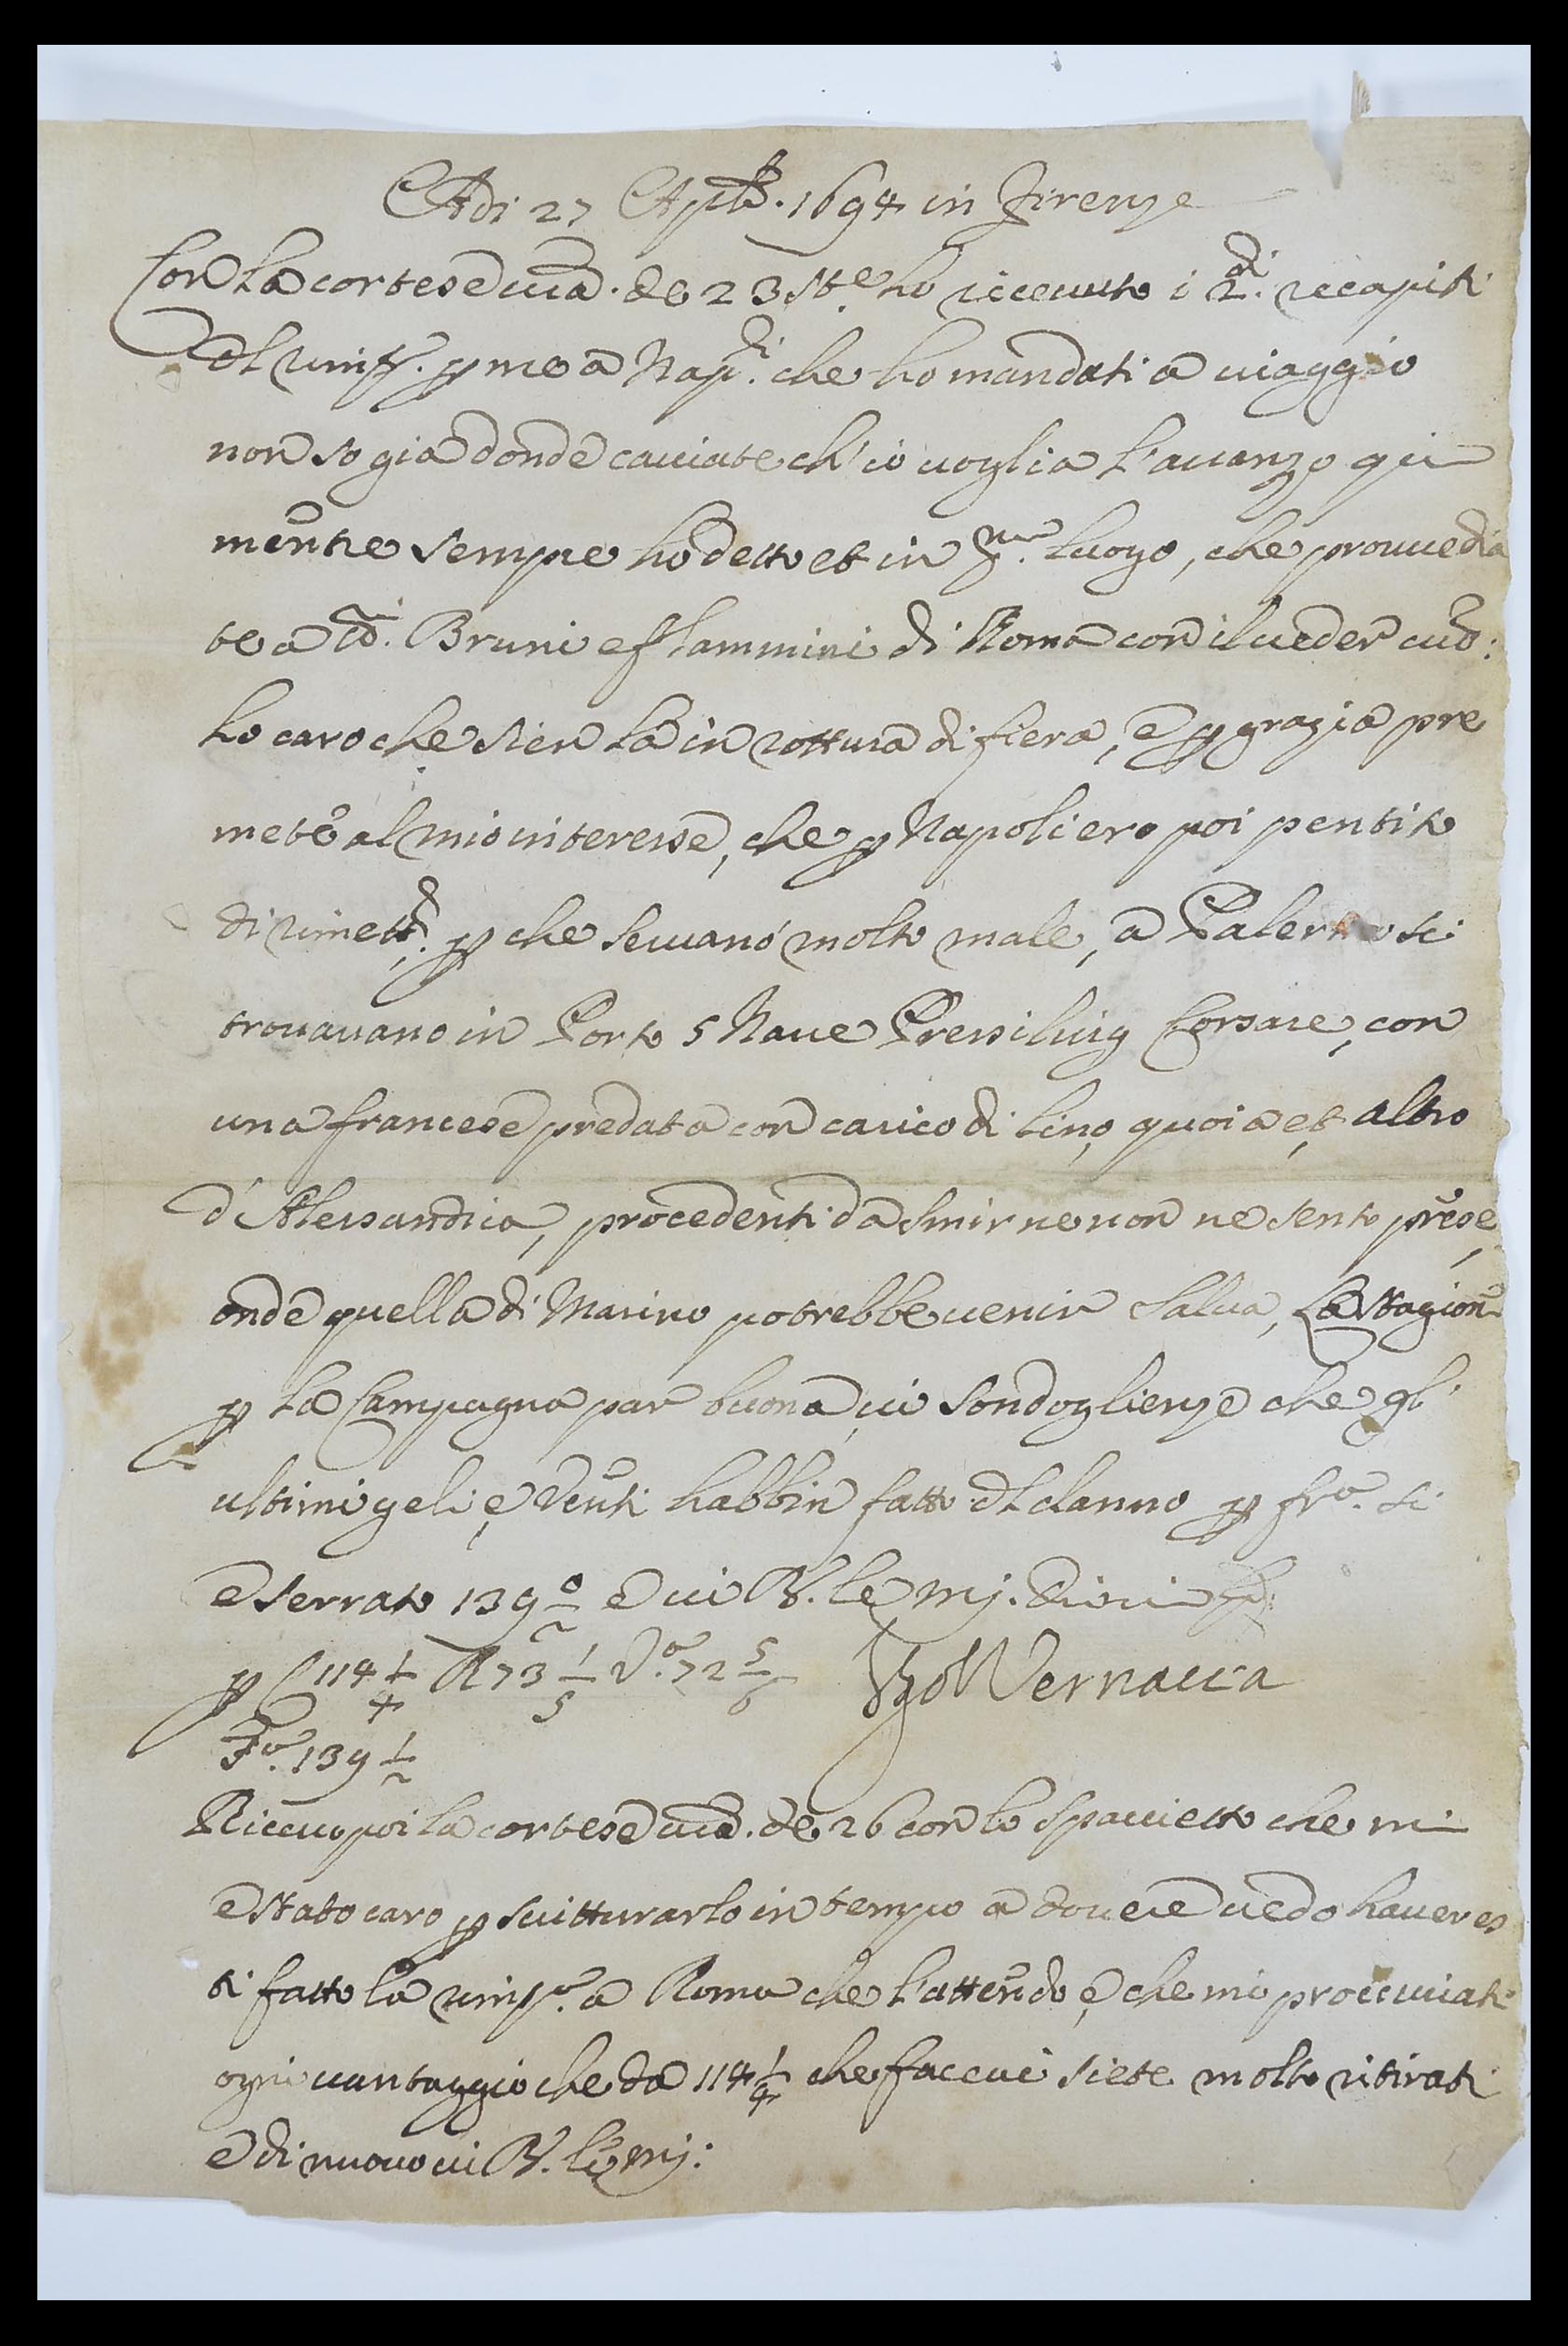 Adi 27 Aple. 1694 in Firenze
Con la cortese vra. de 23 ste. ho riceuuto i 2di. recapiti
del rimss. p me a Napli. che ho mandati a uiaggio
non so gia donde cauiate ch'io uoglia l'auanzo qui
mentre sempre ho detto et in luogo, che prouuedia
te a cod.i Bruni e Flammini di Roma con il ueder
ho caro che sien là in rottura di fiera, e p grazia pre
mete al mio interesse, che p Napoli ero poi pentito
di rimett.d p che seruano molto male, a Palermo si
trouauano in Porto 5 Naue Corsare, con
una francese predata con carico di lino, quoia et altro
d'Alessandria, procedenti da Smirne non ne sento prese,
onde quella di Marino potrebbe uenir salua, La stagion
p la Campagna par buona, ui son doglienze che gli
ultimi geli, e Venti habbin fatto del danno p fro. si
e serrato 139 e ui B. le mj. Dio ui
p L 114 1/4 R 73 1/5 Vo. 72 5/6 Vernacci
Fo. 139 1/2
Riceuo poi la cortese vra. de 26 con lo spaccietto che mi
e stato caro p scritturarlo in tempo a douere uedo haueres
ti fatto la rimssa. a Roma che l'attendo, e che mi procuriati
ogni uantaggio che da 114 1/4 che faceui siete molto ritirati
e di nuouo ui B. le mj: